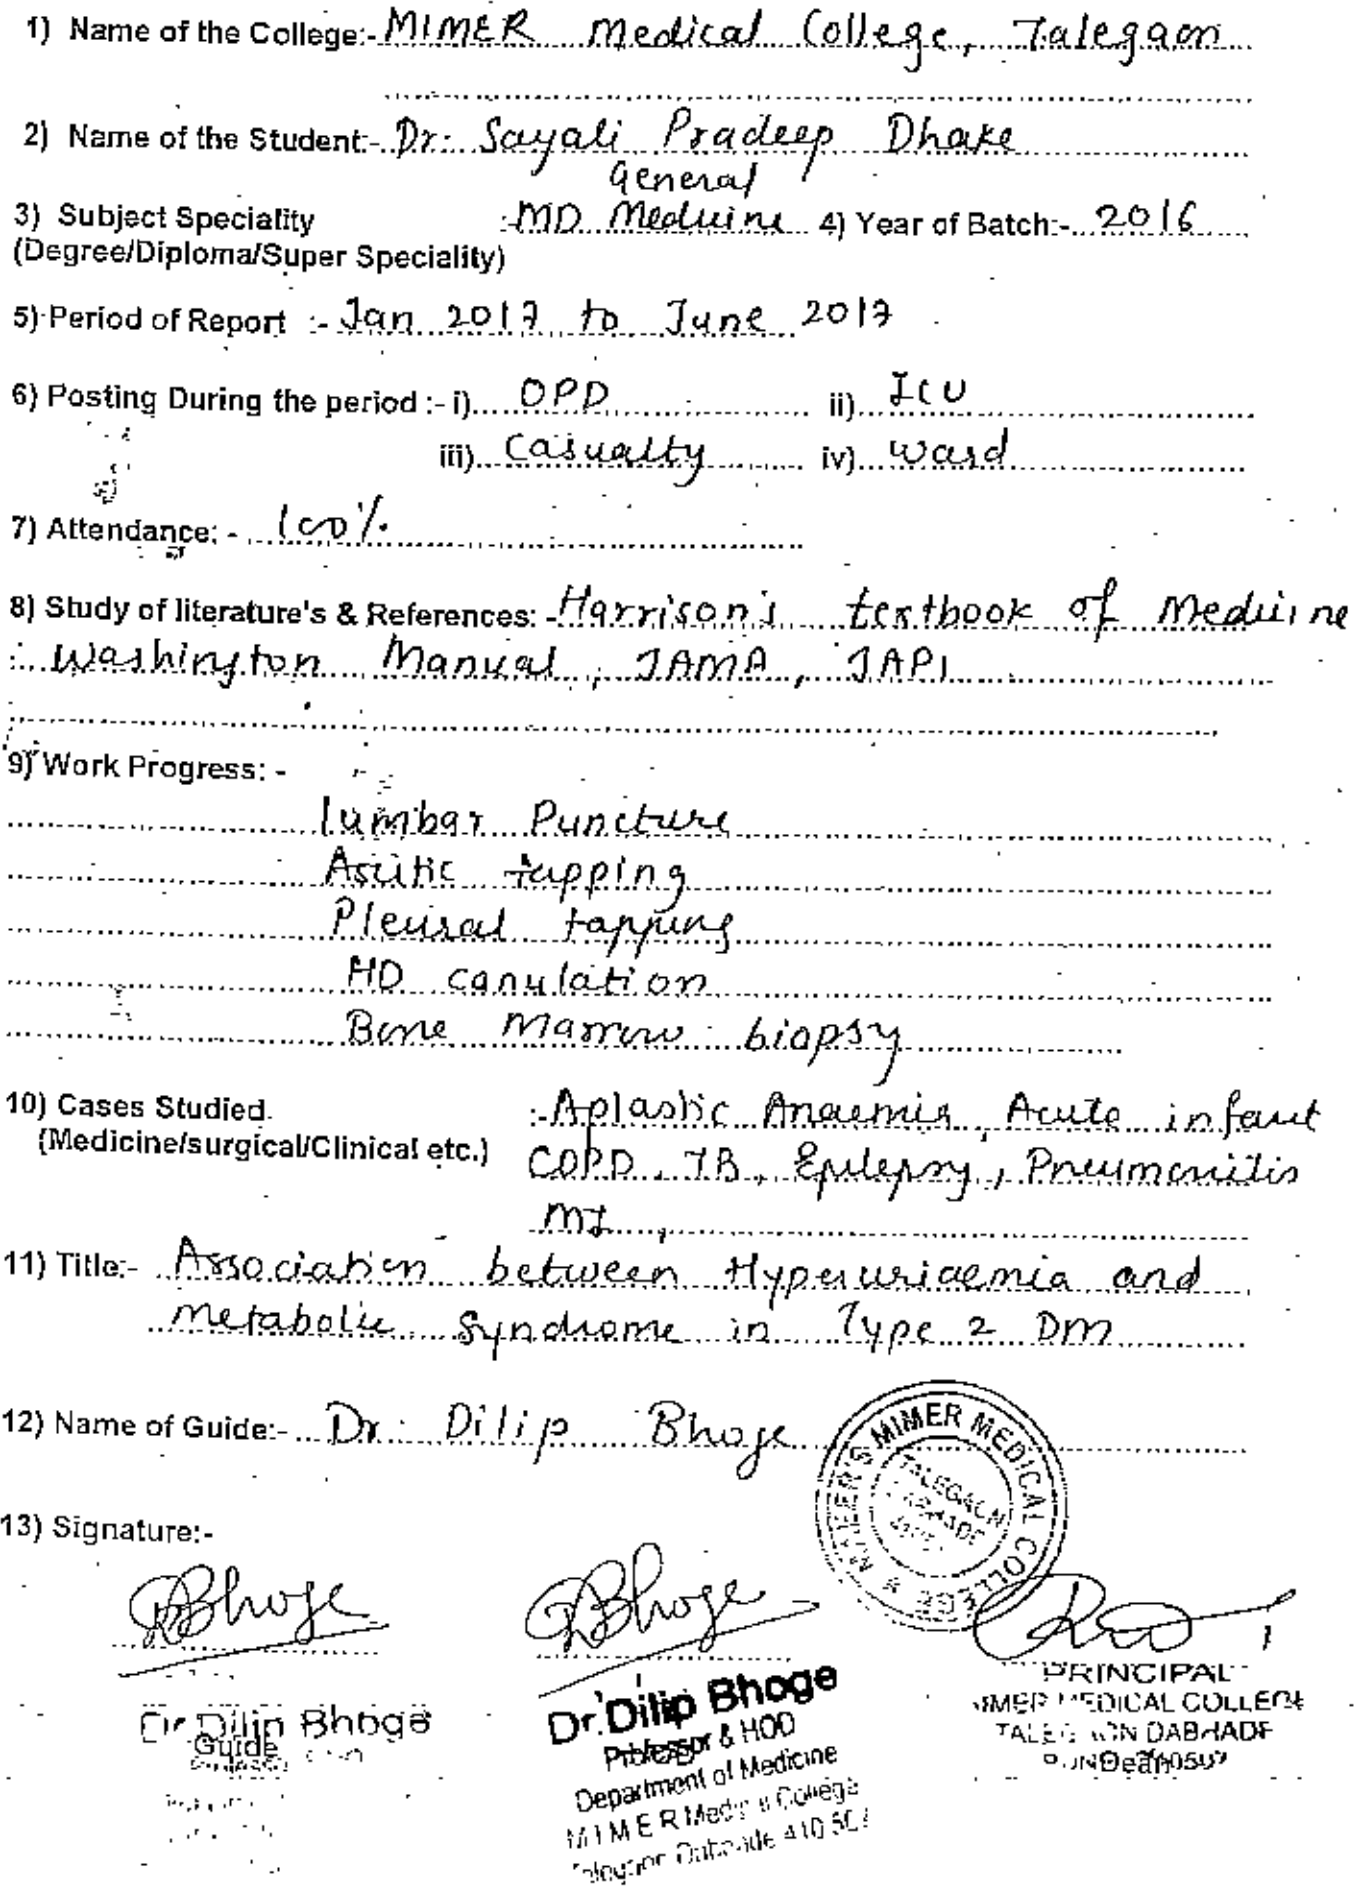 1) Name of the College:- MIMER Medical College, Talegaon
2) Name of the Student:- Dr. Sayali Pradeep Dhake
General
3) Subject Speciality :- MD Medicine 4) Year of Batch:- 2016
(Degree/Diploma/Super Speciality)
5) Period of Report :- Jan 2017 to June 2017
6) Posting During the period :- i) OPD ii) ICU
iii) Casualty iv) Ward
7) Attendance: - 100%
8) Study of literature's & References: - Harrison's textbook of Medicine
Washington Manual, JAMA, JAPI
9) Work Progress: -
lumbar Puncture
Ascitic tapping
Pleural tapping
HD canulation
Bone Marrow biopsy
10) Cases Studied :- Aplastic Anaemia, Acute infarct
(Medicine/surgical/Clinical etc.) COPD, TB, Epilepsy, Pneumonitis
MI,
11) Title:- Association between Hyperuricaemia and
Metabolic Syndrome in Type 2 DM
12) Name of Guide:- Dr. Dilip Bhoge
MAEER'S MIMER MEDICAL COLLEGE
TALEGAON
13) Signature:-
DBhoge DBhoge
Dr Dilip Bhoge
Guide
Dr. Dilip Bhoge
Professor & HOD
Department of Medicine
M I M E R Medical College
Talegaon Dabhade 410 507
PRINCIPAL
MIMER MEDICAL COLLEGE
TALEGAON DABHADE
Dean